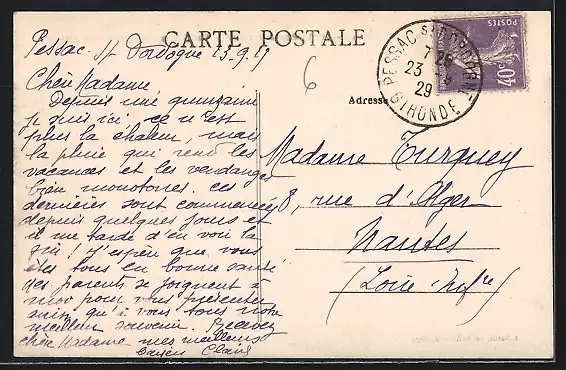 CARTE POSTALE
Pessac. s/ Dordogne 23-9-29
Chère Madame
Depuis une quinzaine
je suis ici. ce n'est
plus la chaleur, mais
la pluie qui rend les
vacances et les vendanges
bien monotones. ces
dernières sont commencées
depuis quelques jours et
il me tarde d'en voir la
fin! J'espère que vous
êtes tous en bonne santé
mes parents se joignent à
moi pour vous présenter
ainsi qu'à vous tous notre
meilleur souvenir. Recevez
chère Madame mes meilleurs
baisers Claire
6
Adresse
Madame Turquey
8, rue d'Alger
Nantes
(Loire-Infre)
PESSAC S/ DORDOGNE
23 -9
29
GIRONDE
POSTES
40c